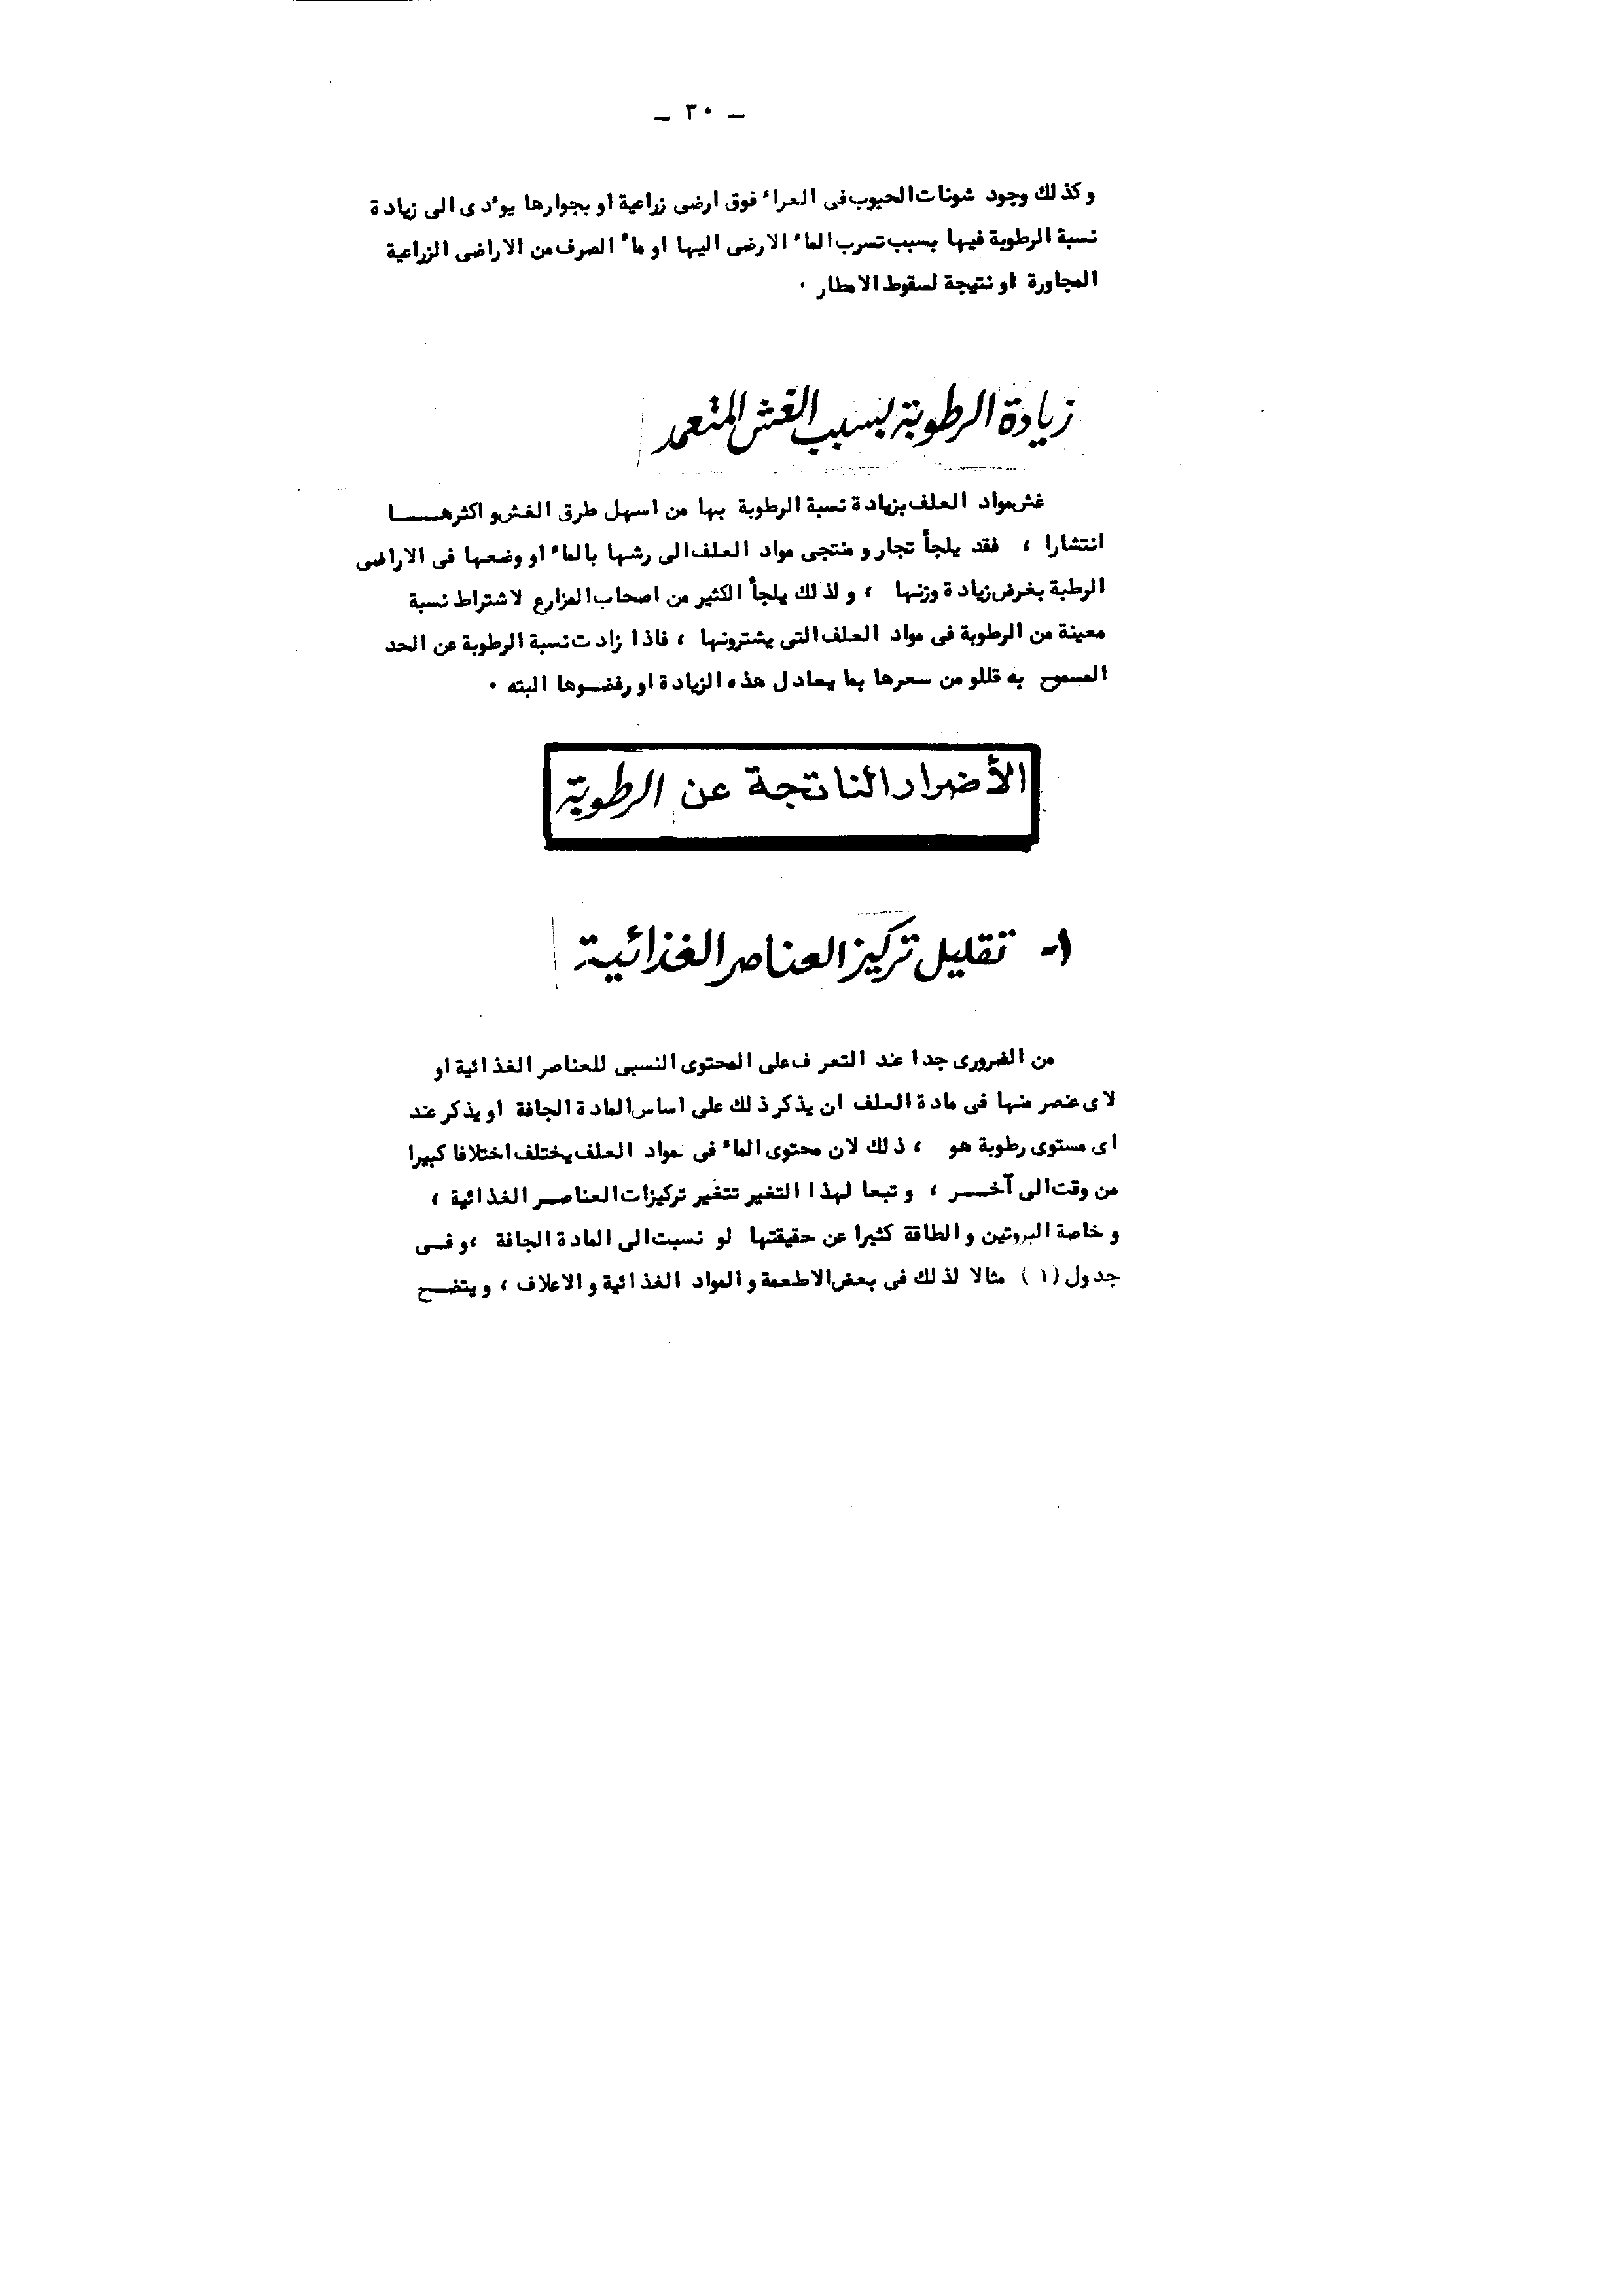 — ٣٠ —
وكذلك وجود شونات الحبوب فى العراء فوق ارضى زراعية او بجوارها يوءدى الى زيادة
نسبة الرطوبة فيها بسبب تسرب الماء الارضى اليها او ماء الصرف من الاراضى الزراعية
المجاورة او نتيجة لسقوط الامطار ٠
زيادة الرطوبة بسبب الغش المتعمد
غش مواد العلف بزيادة نسبة الرطوبة بها من اسهل طرق الغش واكثرهـــا
انتشارا ، فقد يلجأ تجار و منتجى مواد العلف الى رشها بالماء او وضعها فى الاراضى
الرطبة بغرض زيادة وزنها ، ولذلك يلجأ الكثير من اصحاب المزارع لاشتراط نسبة
معينة من الرطوبة فى مواد العلف التى يشترونها ، فاذا زادت نسبة الرطوبة عن الحد
المسموح به قللو من سعرها بما يعادل هذه الزيادة او رفضـوها البته ٠
الأضرار الناتجة عن الرطوبة
١- تقليل تركيز العناصر الغذائية
من الضرورى جدا عند التعرف على المحتوى النسبى للعناصر الغذائية او
لاى عنصر منها فى مادة العلف ان يذكر ذلك على اساس المادة الجافة او يذكر عند
اى مستوى رطوبة هو ، ذلك لان محتوى الماء فى مواد العلف يختلف اختلافا كبيرا
من وقت الى آخـــر ، وتبعا لهذا التغير تتغير تركيزات العناصـر الغذائية ،
وخاصة البروتين والطاقة كثيرا عن حقيقتها لو نسبت الى المادة الجافة ،وفـى
جدول (١) مثالا لذلك فى بعض الاطعمة والمواد الغذائية والاعلاف ، ويتضـح